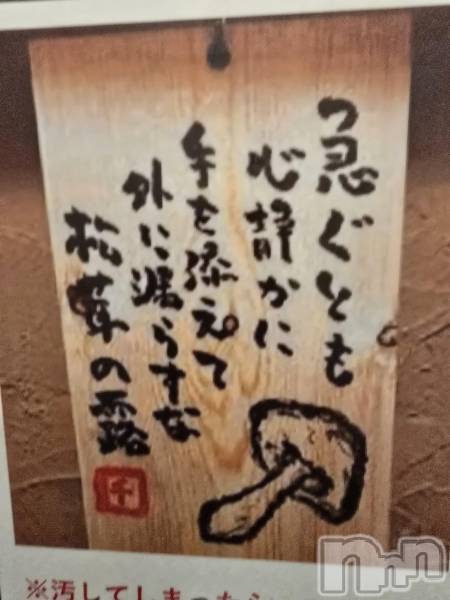 急ぐとも
心静かに
手を添えて
外に漏らすな
松茸の露
千
※汚してしまったら
nnn